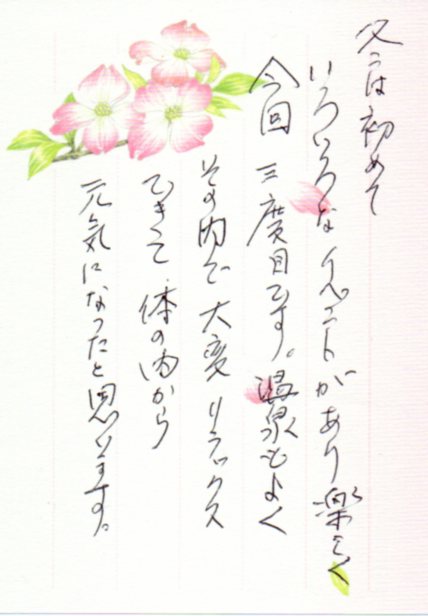 冬は初めて
いろいろなイベントがあり楽しく
今回三度目です。温泉もよく
その内で大変リラックス
できて体の内から
元気になったと思います。